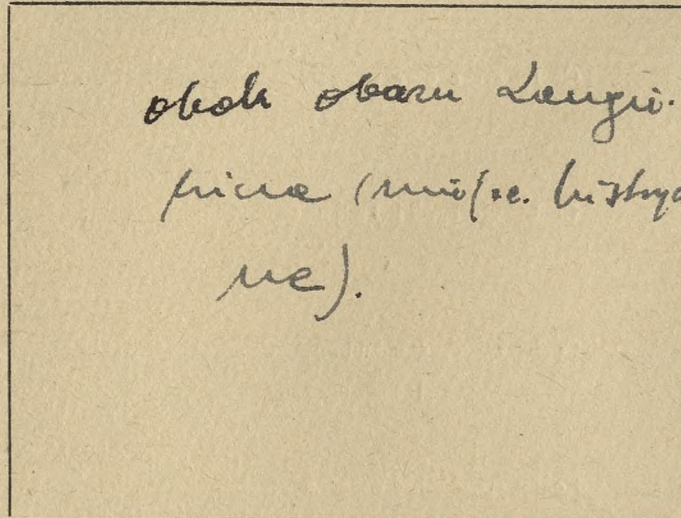 obok obazu Langie-
wicza (miejsc. histrycz
ne).